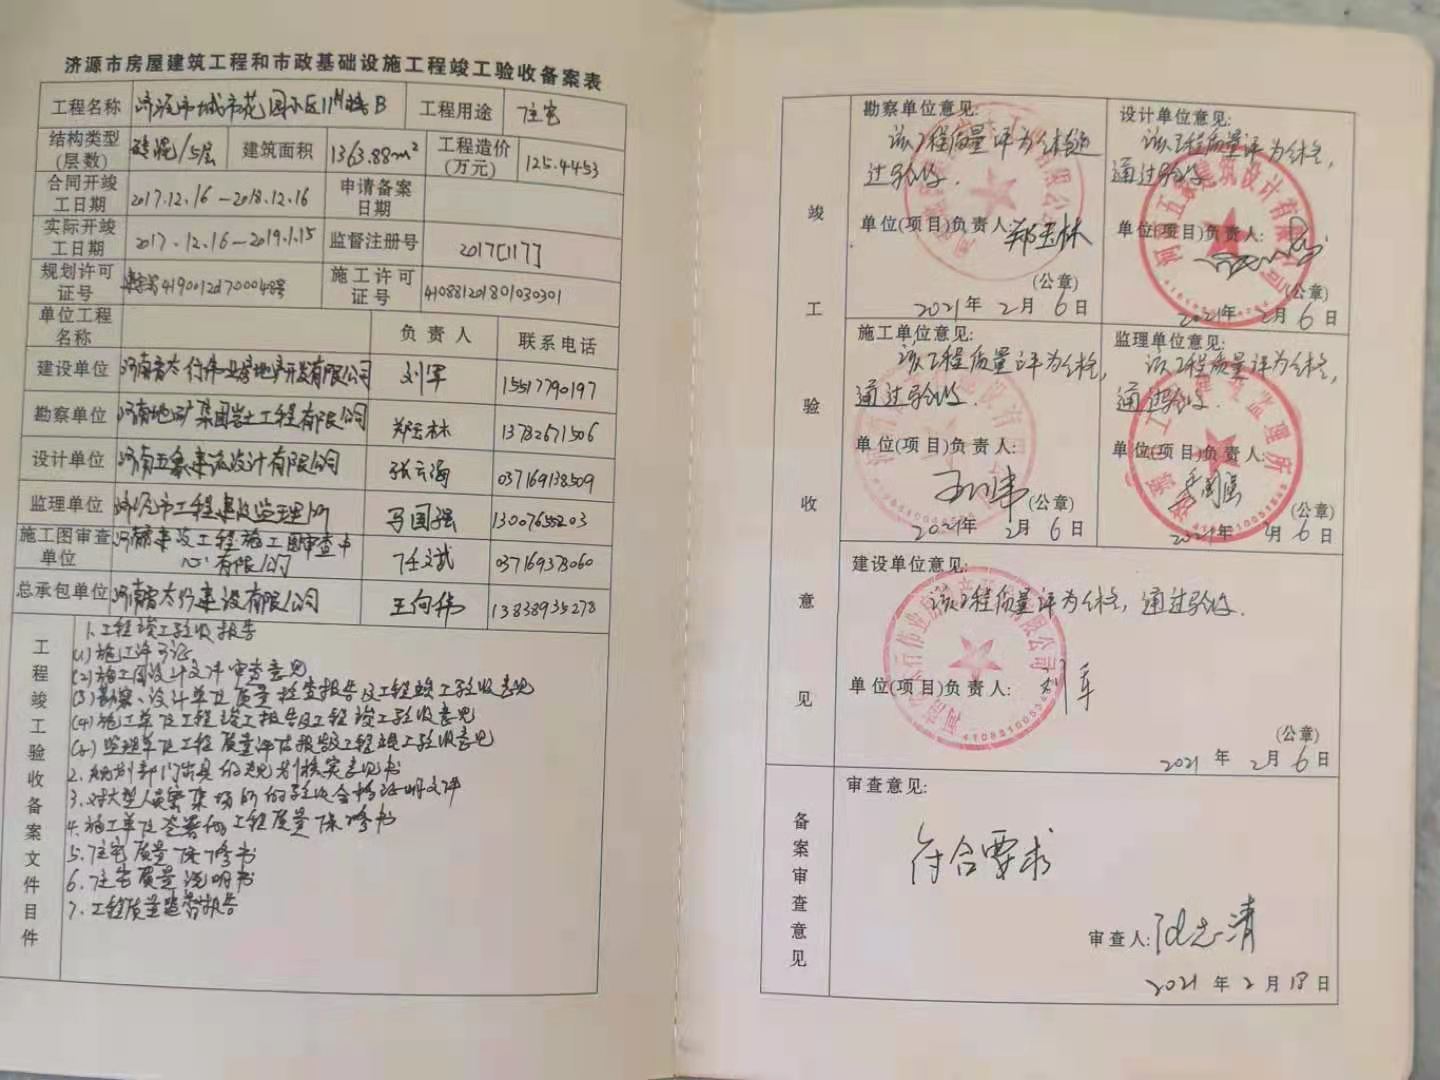 济源市房屋建筑工程和市政基础设施工程竣工验收备案表
工程名称 济源市城市花园小区11#楼B 工程用途 住宅
结构类型(层数) 砖混/5层 建筑面积 1363.88m² 工程造价(万元) 125.4453
合同开竣工日期 2017.12.16－2018.12.16 申请备案日期
实际开竣工日期 2017.12.16－2019.1.15 监督注册号 2017[117]
规划许可证号 419001201700048号 施工许可证号 410881201801030301
单位工程名称 负责人 联系电话
建设单位 河南省太行伟业房地产开发有限公司 刘军 15517790197
勘察单位 河南地矿集团岩土工程有限公司 郑玉林 13782671506
设计单位 河南五象建筑设计有限公司 张云海 037169138509
监理单位 济源市工程建设监理所 马国强 13007655203
施工图审查单位 建设工程施工图审查中心有限公司 任文斌 037169373060
总承包单位 河南省太行建设有限公司 王向伟 13838935278
工程竣工验收备案文件目
1.工程竣工验收报告
(1)施工许可证
(2)施工图设计文件审查意见
(3)勘察、设计单位质量检查报告及工程竣工验收意见
(4)施工单位工程竣工报告及工程竣工验收意见
(5)监理单位工程质量评估报告及工程竣工验收意见
2.规划部门出具的规划核实意见书
3.对大型人员密集场所的验收合格证明文件
4.施工单位签署的工程质量保修书
5.住宅质量保修书
6.住宅质量说明书
7.工程质量监督报告
竣工验收意见
勘察单位意见:
该工程质量评为合格,通过验收.
单位(项目)负责人: 郑玉林
(公章)
2021年2月6日
设计单位意见:
该工程质量评为合格,
通过验收.
单位(项目)负责人:
(公章)
2021年2月6日
施工单位意见:
该工程质量评为合格,
通过验收.
单位(项目)负责人:
(公章)
2021年2月6日
监理单位意见:
该工程质量评为合格,
通过验收.
单位(项目)负责人: 马国强
2021年2月6日
建设单位意见:
该工程质量评为合格,通过验收.
单位(项目)负责人: 刘军
(公章)
2021年2月6日
备案审查意见
审查意见:
符合要求
审查人:
2021年2月18日